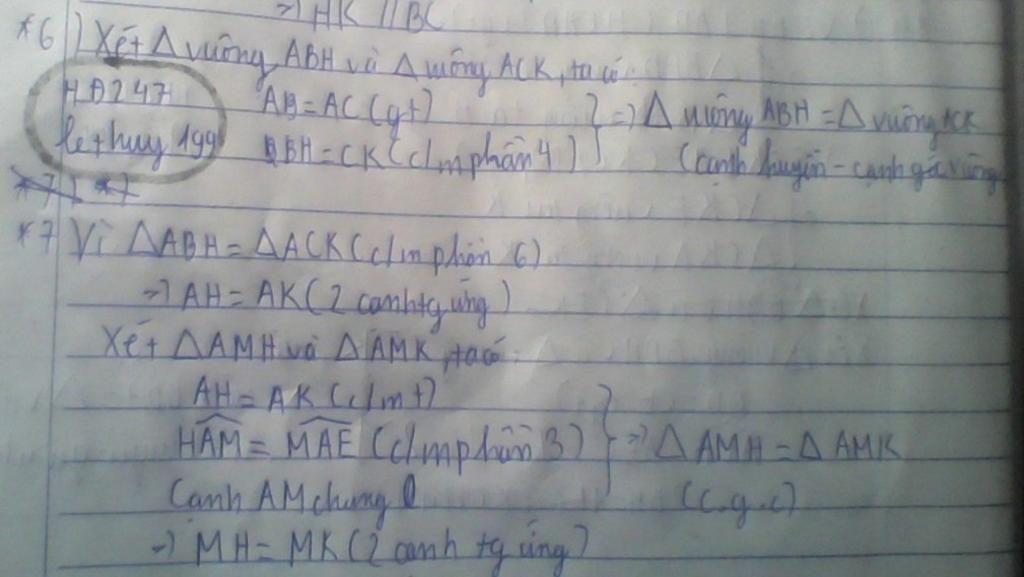 => HK // BC
*6) Xét Δ vuông ABH và Δ vuông ACK, ta có:
HĐ247
lethuy199
AB = AC (gt)
BH = CK (c/m phần 4)
=> Δ vuông ABH = Δ vuông ACK
(cạnh huyền - cạnh góc vuông
*7) Vì ΔABH = ΔACK (c/m phần 6)
=> AH = AK (2 cạnh tg ứng)
Xét ΔAMH và ΔAMK, ta có:
AH = AK (c/m t)
HAM = MAE (c/m phần 3)
Cạnh AM chung
=> Δ AMH = Δ AMK
(c.g.c)
=> MH = MK (2 cạnh tg ứng)